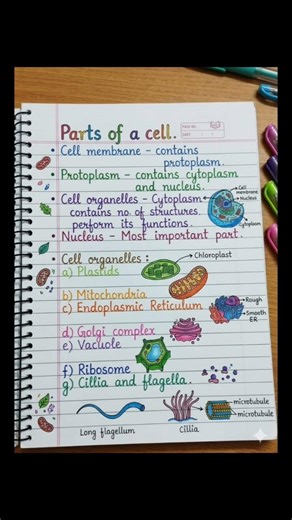 Parts of a cell.
PAGE NO.
DATE
• Cell membrane – contains
protoplasm.
• Protoplasm – contains cytoplasm
and nucleus.
• Cell organelles – Cytoplasm
contains no. of structures.
perform its functions.
• Nucleus – Most important part.
Cell
membrane
Nucleus
Cytoplasm
• Cell organelles :
Chloroplast
a) Plastids
b) Mitochondria
c) Endoplasmic Reticulum
Rough
Smooth
ER
d) Golgi complex
e) Vacuole
f) Ribosome
g) Cillia and flagella.
Long flagellum
Cillia
microtubule
microtubule